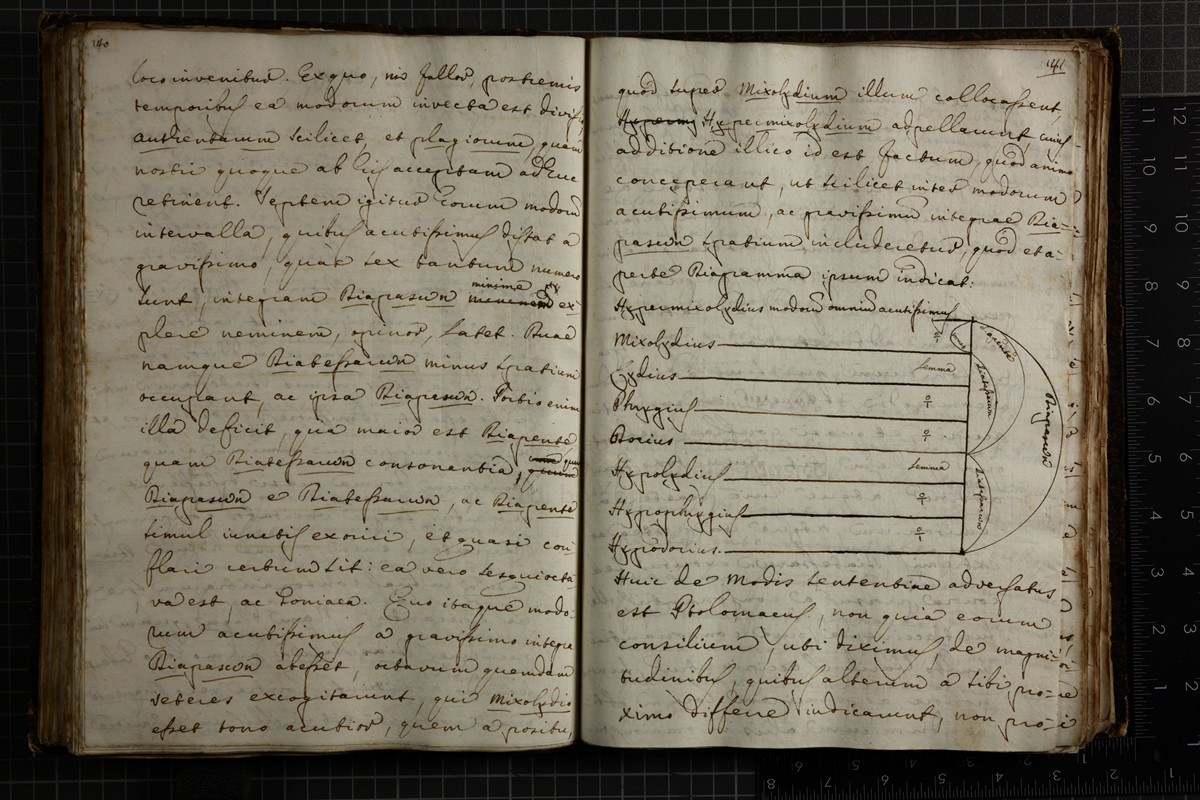 140
loco invenibus. Ex quo, nis fallor, postremis
temporibus ea modorum invecta est divis.
authentarum scilicet, et plagiorum, quam
nostri quoque ab his acceptam adhuc
retinent. Septem igitur eorum modorū
intervalla, quibus acutissimus distat a
gravissimo, quae sex tantum numero
sunt, integram Diapason minime ex-
plere neminem, opinor, latet. Duae
namque Diatessaron minus spatium
occupant, ac ipsa Diapason. Torbio enim
illa deficit, qua maior est Diapente
quam Diatessaron consonantia, quum
Diapason e Diatessaron, ac Diapente
simul iunctis exorici, et quasi con
flari certum sit: ea vero sesquiocta
va est, ac Toniaea. Quo itaque modo-
rum acutissimus a gravissimo integra
Diapason abesset, octavum quemdam
veteres excogitarunt, qui Mixolydio
esset tono acutior, quem a positu,
141
quod super Mixolydium illum collocassent,
Hypermixolydium adpellarunt, cuius
additione illico id est factum, quod animo
conceperant, ut scilicet inter modorum
acutissimum, ac gravissimū integrae Dia-
pason spatium includeretur, quod et a-
perte Diagramma ipsum indicat:
Hypermixolydius modorū omniū acutissimus
Mixolydius
Lydius
Phrygius
Dorius
Hypolydius
Hypophrygius
Hypodorius.
Lemma
Lemma
Diapente
Diatessaron
Diatessaron
Diapason
Huic de Modis sententiae adversatus
est Ptolomaeus, non quia eorum
consilium, ubi diximus, de magni-
tudinibus, quibus alterum a sibi pro-
ximo differre indicarunt, non pro-